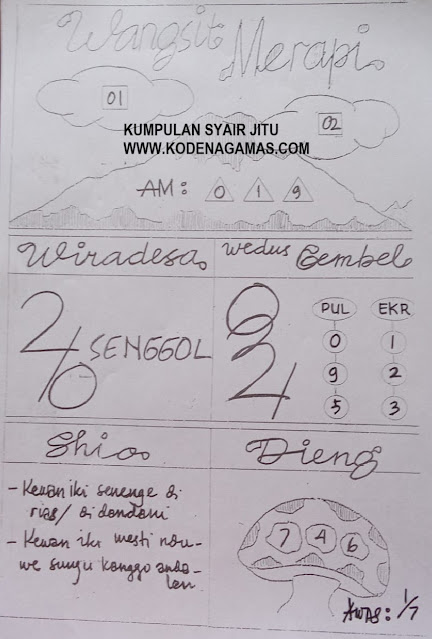 Wangsit Merapi
01
02
KUMPULAN SYAIR JITU
WWW.KODENAGAMAS.COM
AM: 0 1 9
Wiradesa
2/0 SENGGOL
wedus Gembel
PUL EKR
0 1
9 2
5 3
Shio
- Kewan iki senenge di
rias/ di dandani
- Kewan iki mesti ndu-
we sungu kanggo anda-
lan
Dieng
7 4 6
AWAS: 1/7